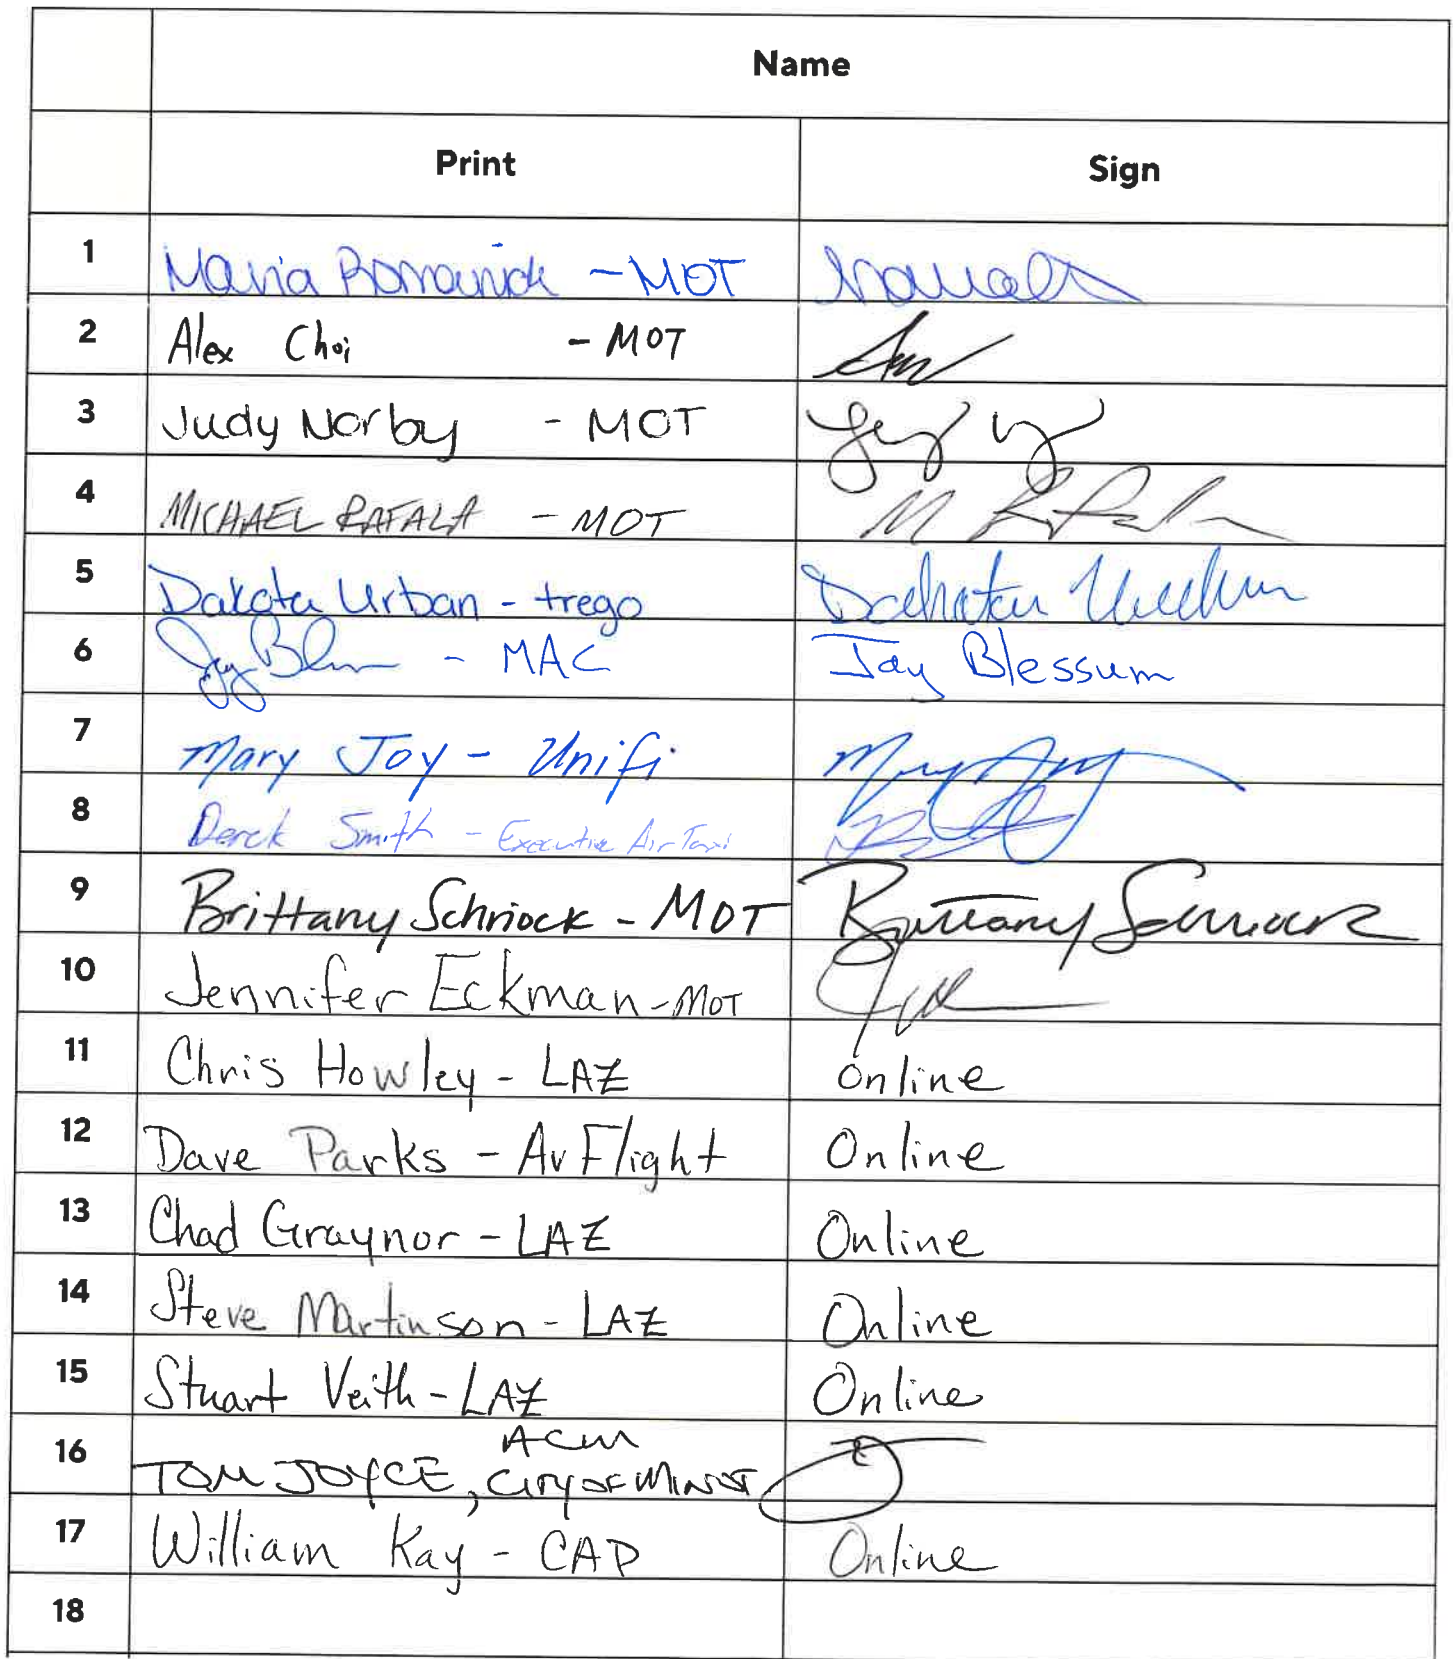 Name
Print Sign
1 Maria Romanick - MOT
2 Alex Choi - MOT
3 Judy Norby - MOT
4 MICHAEL RAFALA - MOT
5 Dakota Urban - trego
6 - MAC Jay Blessum
7 Mary Joy - Unifi
8 Derek Smith - Executive Air Taxi
9 Brittany Schriock - MOT Brittany Schriock
10 Jennifer Eckman - MOT
11 Chris Howley - LAZ Online
12 Dave Parks - AvFlight Online
13 Chad Graynor - LAZ Online
14 Steve Martinson - LAZ Online
15 Stuart Veith - LAZ Online
ACM
16 TOM JOYCE, CITY OF MINOT
17 William Kay - CAP Online
18